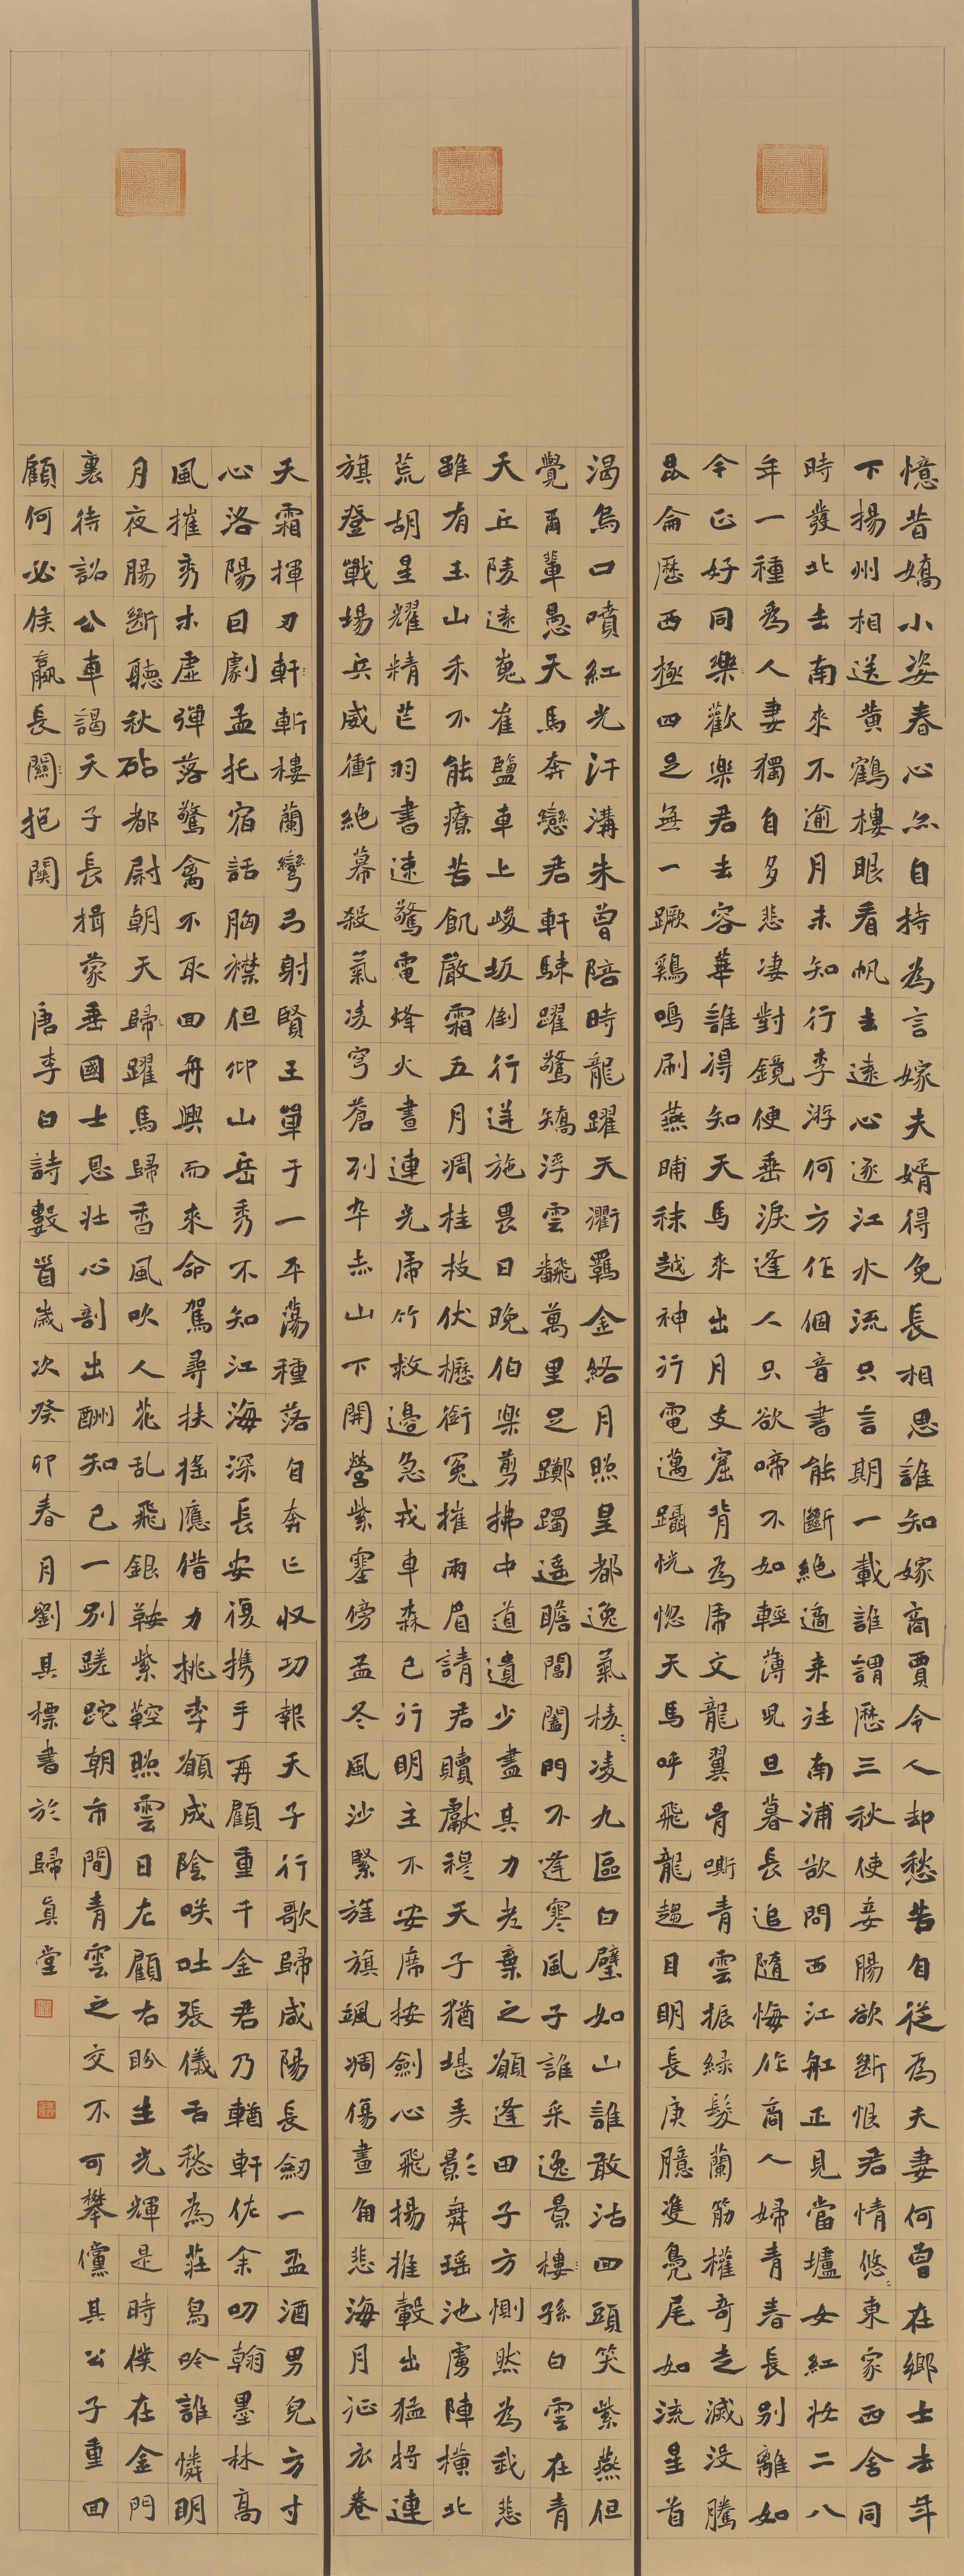 憶昔嬌小姿春心亦自持為言嫁夫婿得免長相思誰知嫁商賈令人却愁苦自從為夫妻何曾在鄉土去年
下揚州相送黃鶴樓眼看帆去遠心逐江水流只言期一載誰謂歷三秋使妾腸欲斷恨君情悠〻東家西舍同
時發北去南來不逾月未知行李游何方作個音書能斷絕適来往南浦欲問西江舡正見當壚女紅妝二八
年一種為人妻獨自多悲凄對鏡便垂淚逢人只欲啼不如輕薄兒旦暮長追隨悔作商人婦青春長別離如
今正好同樂歡樂君去容華誰得知天馬來出月支窟背為虎文龍翼骨嘶青雲振緑髮蘭筋權奇走滅没騰
昆侖歷西極四足無一蹶鷄鳴刷燕晡秣越神行電邁躡恍惚天馬呼飛龍趨目明長庚臆雙鳧尾如流星首
渴烏口噴紅光汗溝朱曾陪時龍躍天衢羈金絡月照皇都逸氣稜〻凌九區白璧如山誰敢沽回頭笑紫燕但
覺爾輩愚天馬奔戀君軒駷躍驚矯浮雲翻萬里足躑躅遥瞻閶闔門不逢寒風子誰采逸景樓孫白雲在青
天丘陵遠嵬崔鹽車上峻坂倒行逆施畏日晚伯樂剪拂中道遺少盡其力老棄之願逢田子方惻然為我悲
雖有玉山禾不能療苦飢嚴霜五月凋桂枝伏櫪銜冤摧兩眉請君贖獻穆天子猶堪弄影舞瑶池虜陣橫北
荒胡星耀精芒羽書速驚電烽火晝連光虎竹救邊急戎車森已行明主不安席按劍心飛揚推轂出猛將連
旗登戰場兵威衝絕幕殺氣凌穹蒼列卒赤山下開營紫塞傍孟冬風沙緊旌旗颯凋傷畫角悲海月征衣卷
天霜揮刃軒斬樓蘭彎弓射賢王單于一平蕩種落自奔亡收功報天子行歌歸咸陽長劍一盃酒男兒方寸
心洛陽因劇孟托宿話胸襟但仰山岳秀不知江海深長安復携手再顧重千金君乃輶軒佐余叨翰墨林高
風摧秀木虛彈落驚禽不取回舟興而來命駕尋扶摇應借力桃李願成陰咲吐張儀舌愁為莊舄吟誰憐明
月夜腸斷聽秋砧都尉朝天歸躍馬歸香風吹人花乱飛銀鞍紫鞚照雲日左顧右盼生光輝是時僕在金門
裏待詔公車謁天子長揖蒙垂國士恩壯心剖出酬知己一別蹉跎朝市間青雲之交不可攀儻其公子重回
顧何必侯嬴長關抱關
唐李白詩數首歲次癸卯春月劉其標書於歸真堂